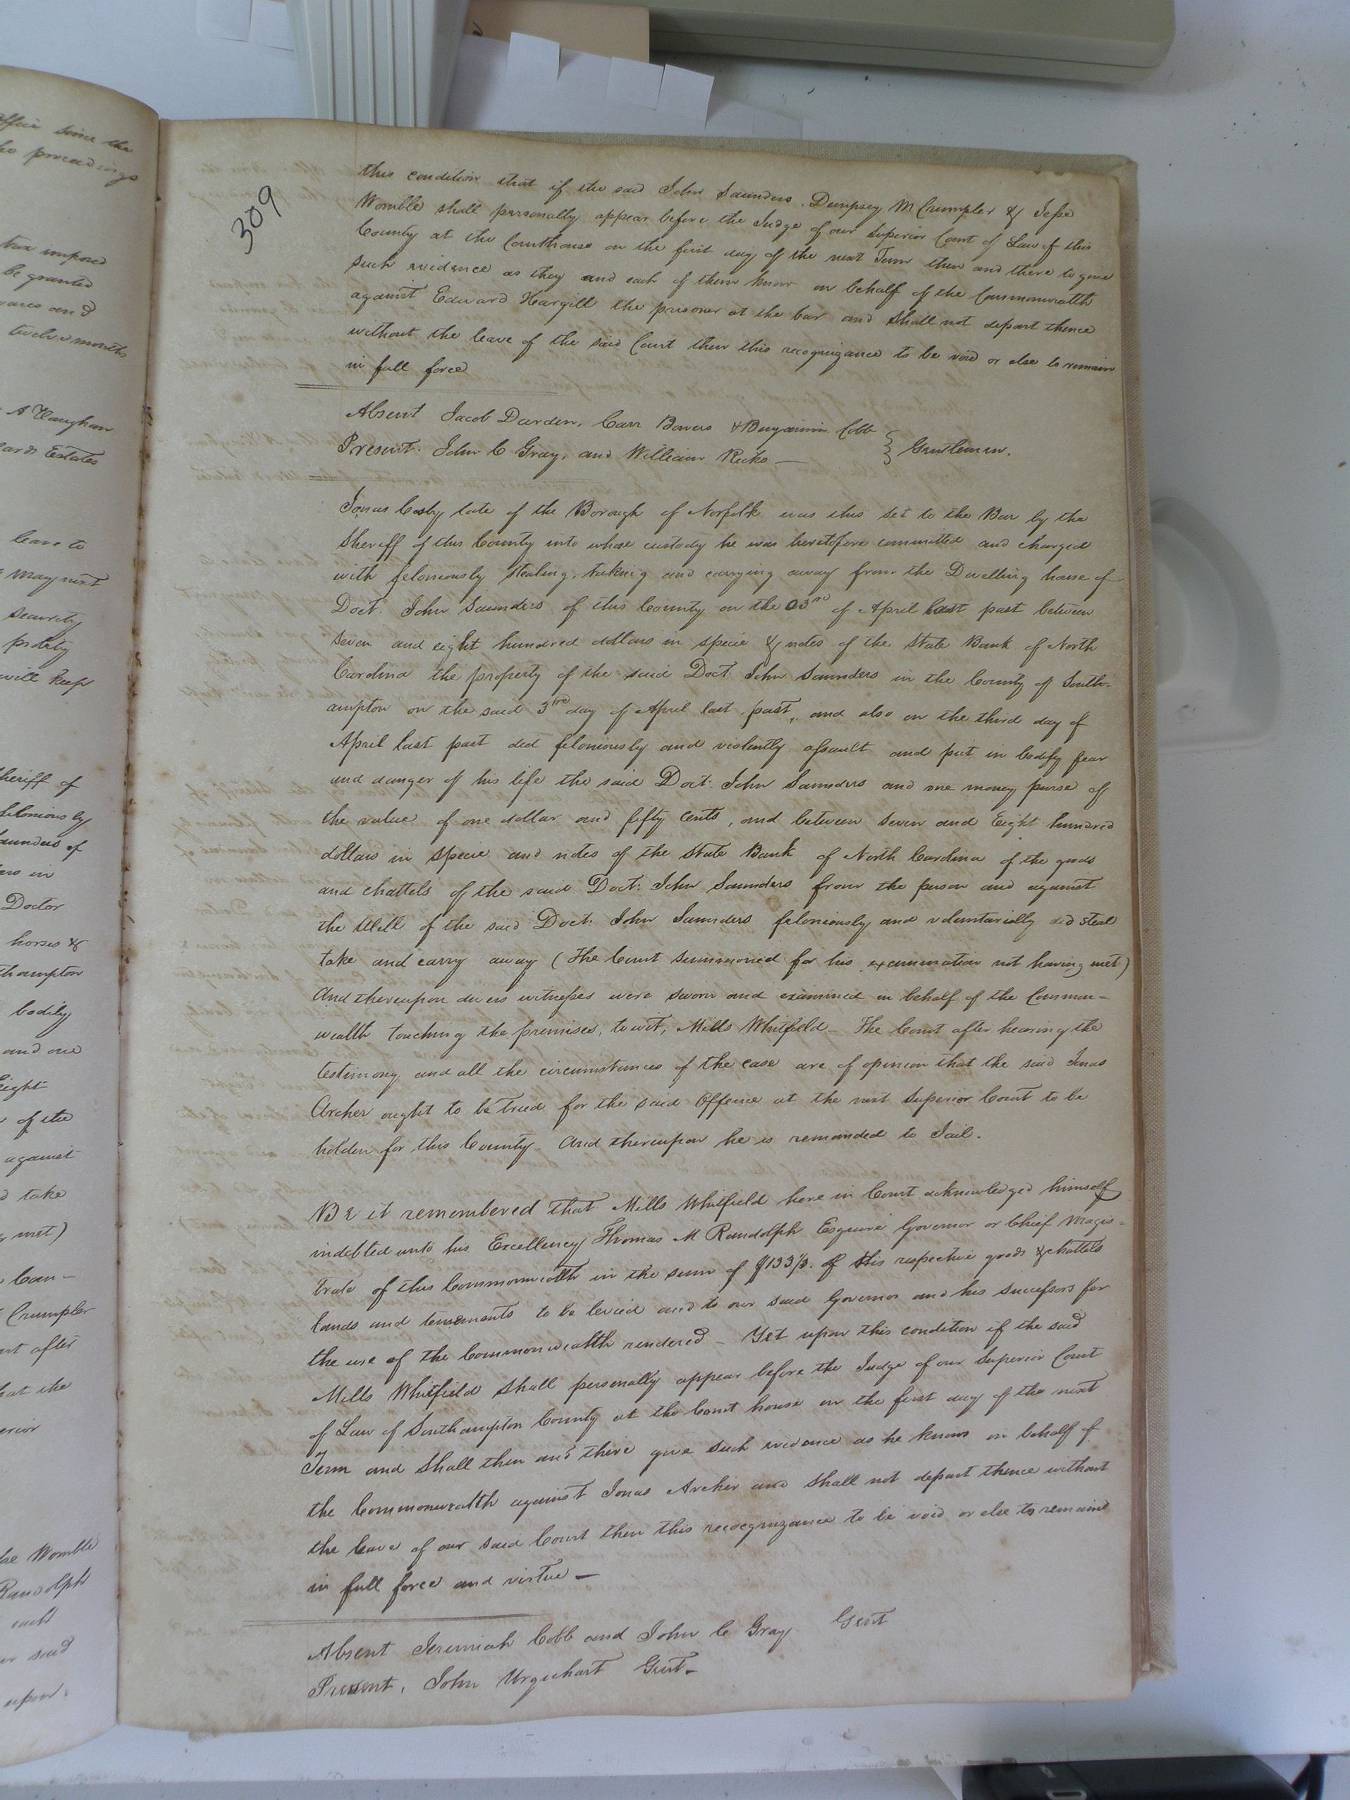 309
this condition that if the said John Saunders, Dempsey M Crumpler & Jesse
Womble shall personally appear before the Judge of our Superior Court of Law of this
County at the Courthouse on the first day of the next Term then and there to give
such evidence as they and each of them know on behalf of the Commonwealth
against Edward Hargill the prisoner at the bar and shall not depart thence
without the leave of the said Court then this recognizance to be void or else to remain
in full force
Absent Jacob Darden, Carr Bowers & Benjamin Cobb
Present. John C Gray, and William Ricks —
Gentlemen.
Jonas Cosby late of the Borough of Norfolk was this set to the Bar by the
Sheriff of this County into whose custody he was heretofore committed and charged
with feloniously stealing, taking and carrying away from the Dwelling house of
Doct. John Saunders of this County on the 03rd of April last past between
seven and eight hundred dollars in specie & notes of the State Bank of North
Carolina the property of the said Doct John Saunders in the County of South-
ampton on the said 3rd day of April last past, and also on the third day of
April last past did feloniously and violently assault and put in bodily fear
and danger of his life the said Doct. John Saunders and one money purse of
the value of one dollar and fifty cents, and between seven and Eight hundred
dollars in specie and notes of the State Bank of North Carolina of the goods
and chattels of the said Doct. John Saunders from the person and against
the Will of the said Doct. John Saunders feloniously and voluntarially did steal
take and carry away (The Court summoned for his examination not having met)
And thereupon divers witnesses were sworn and examined on behalf of the Common-
wealth touching the premises, to wit, Mills Whitfield - The Court after hearing the
testimony and all the circumstances of the case are of opinion that the said Jonas
Archer ought to be tried for the said Offence at the next Superior Court to be
holden for this County And thereupon he is remanded to Jail.
Be it remembered that Mills Whitfield here in Court acknowledged himself
indebted unto his Excellency Thomas M Randolph Esquire Governor or Chief Magis-
trate of this Commonwealth in the sum of $133⅓. of his respective goods & chattels
lands and tenements to be levied and to our said Governor and his successors for
the use of the Commonwealth rendered - Yet upon this condition if the said
Mills Whitfield shall personally appear before the Judge of our Superior Court
of Law of Southampton County at the Court house on the first day of the next
Term and shall then and there give such evidence as he knows on behalf of
the Commonwealth against Jonas Archer and shall not depart thence without
the leave of our said Court then this recognizance to be void or else to remain
in full force and virtue —
Absent Jeremiah Cobb and John C Gray Gent
Present, John Urquhart Gent-